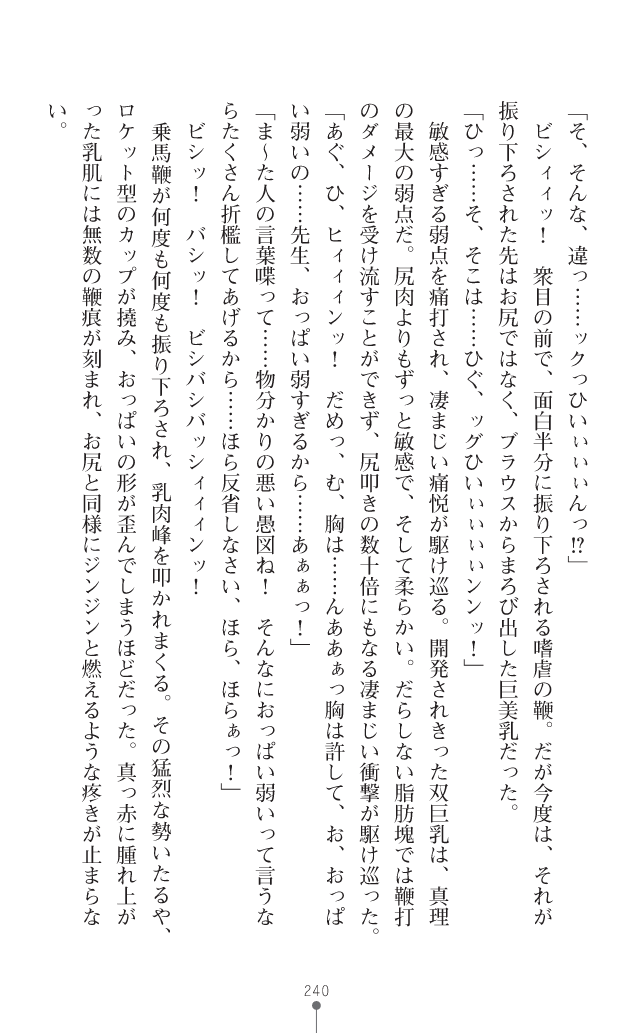 「そ、そんな、違っ……ックっひいぃぃぃんっ!?」
　ビシィィッ！　衆目の前で、面白半分に振り下ろされる嗜虐の鞭。だが今度は、それが
振り下ろされた先はお尻ではなく、ブラウスからまろび出した巨美乳だった。
「ひっ……そ、そこは……ひぐ、ッグひいぃぃぃぃンンッ！」
　敏感すぎる弱点を痛打され、凄まじい痛悦が駆け巡る。開発されきった双巨乳は、真理
の最大の弱点だ。尻肉よりもずっと敏感で、そして柔らかい。だらしない脂肪塊では鞭打
のダメージを受け流すことができず、尻叩きの数十倍にもなる凄まじい衝撃が駆け巡った。
「あぐ、ひ、ヒィィィンッ！　だめっ、む、胸は……んああぁっ胸は許して、お、おっぱ
い弱いの……先生、おっぱい弱すぎるから……あぁぁっ！」
「ま～た人の言葉喋って……物分かりの悪い愚図ね！　そんなにおっぱい弱いって言うな
らたくさん折檻してあげるから……ほら反省しなさい、ほら、ほらぁっ！」
　ビシッ！　バシッ！　ビシバシバッシィィィンッ！
　乗馬鞭が何度も何度も振り下ろされ、乳肉峰を叩かれまくる。その猛烈な勢いたるや、
ロケット型のカップが撓み、おっぱいの形が歪んでしまうほどだった。真っ赤に腫れ上が
った乳肌には無数の鞭痕が刻まれ、お尻と同様にジンジンと燃えるような疼きが止まらな
い。
240